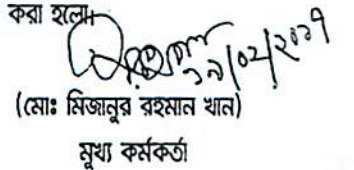 করা হলো।
১৯/০২/২০১৭
(মোঃ মিজানুর রহমান খান)
মূখ্য কর্মকর্তা